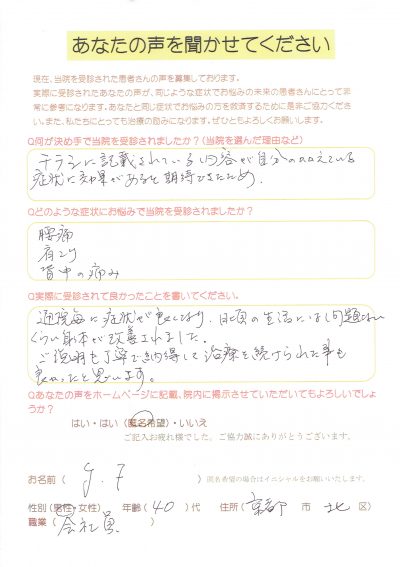 あなたの声を聞かせてください
現在、当院を受診された患者さんの声を募集しております。
実際に受診されたあなたの声が、同じような症状でお悩みの未来の患者さんにとって非
常に参考になります。あなたと同じ症状でお悩みの方を救済するために是非ご協力くださ
い。また、私たちにとっても治療の励みになります。ぜひともよろしくお願いします。
Q何が決め手で当院を受診されましたか?(当院を選んだ理由など)
チラシに記載されている内容が自分のかかえている
症状に効果があると期待できたため.
Qどのような症状にお悩みで当院を受診されましたか?
腰痛
肩こり
背中の痛み
Q実際に受診されて良かったことを書いてください。
通院毎に症状が良くなり、日頃の生活には問題ない
くらい身体が改善されました.
ご説明も丁寧で納得して治療を続けられた事も
良かったと思います。
Qあなたの声をホームページに記載、院内に掲示させていただいてもよろしいでしょ
うか?
はい・はい(匿名希望)・いいえ
ご記入お疲れ様でした。ご協力誠にありがとうございます。
お名前( y.F )匿名希望の場合はイニシャルをお願いいたします。
性別(男性・女性) 年齢(40)代 住所(京都 市 北 区)
職業(会社員 )